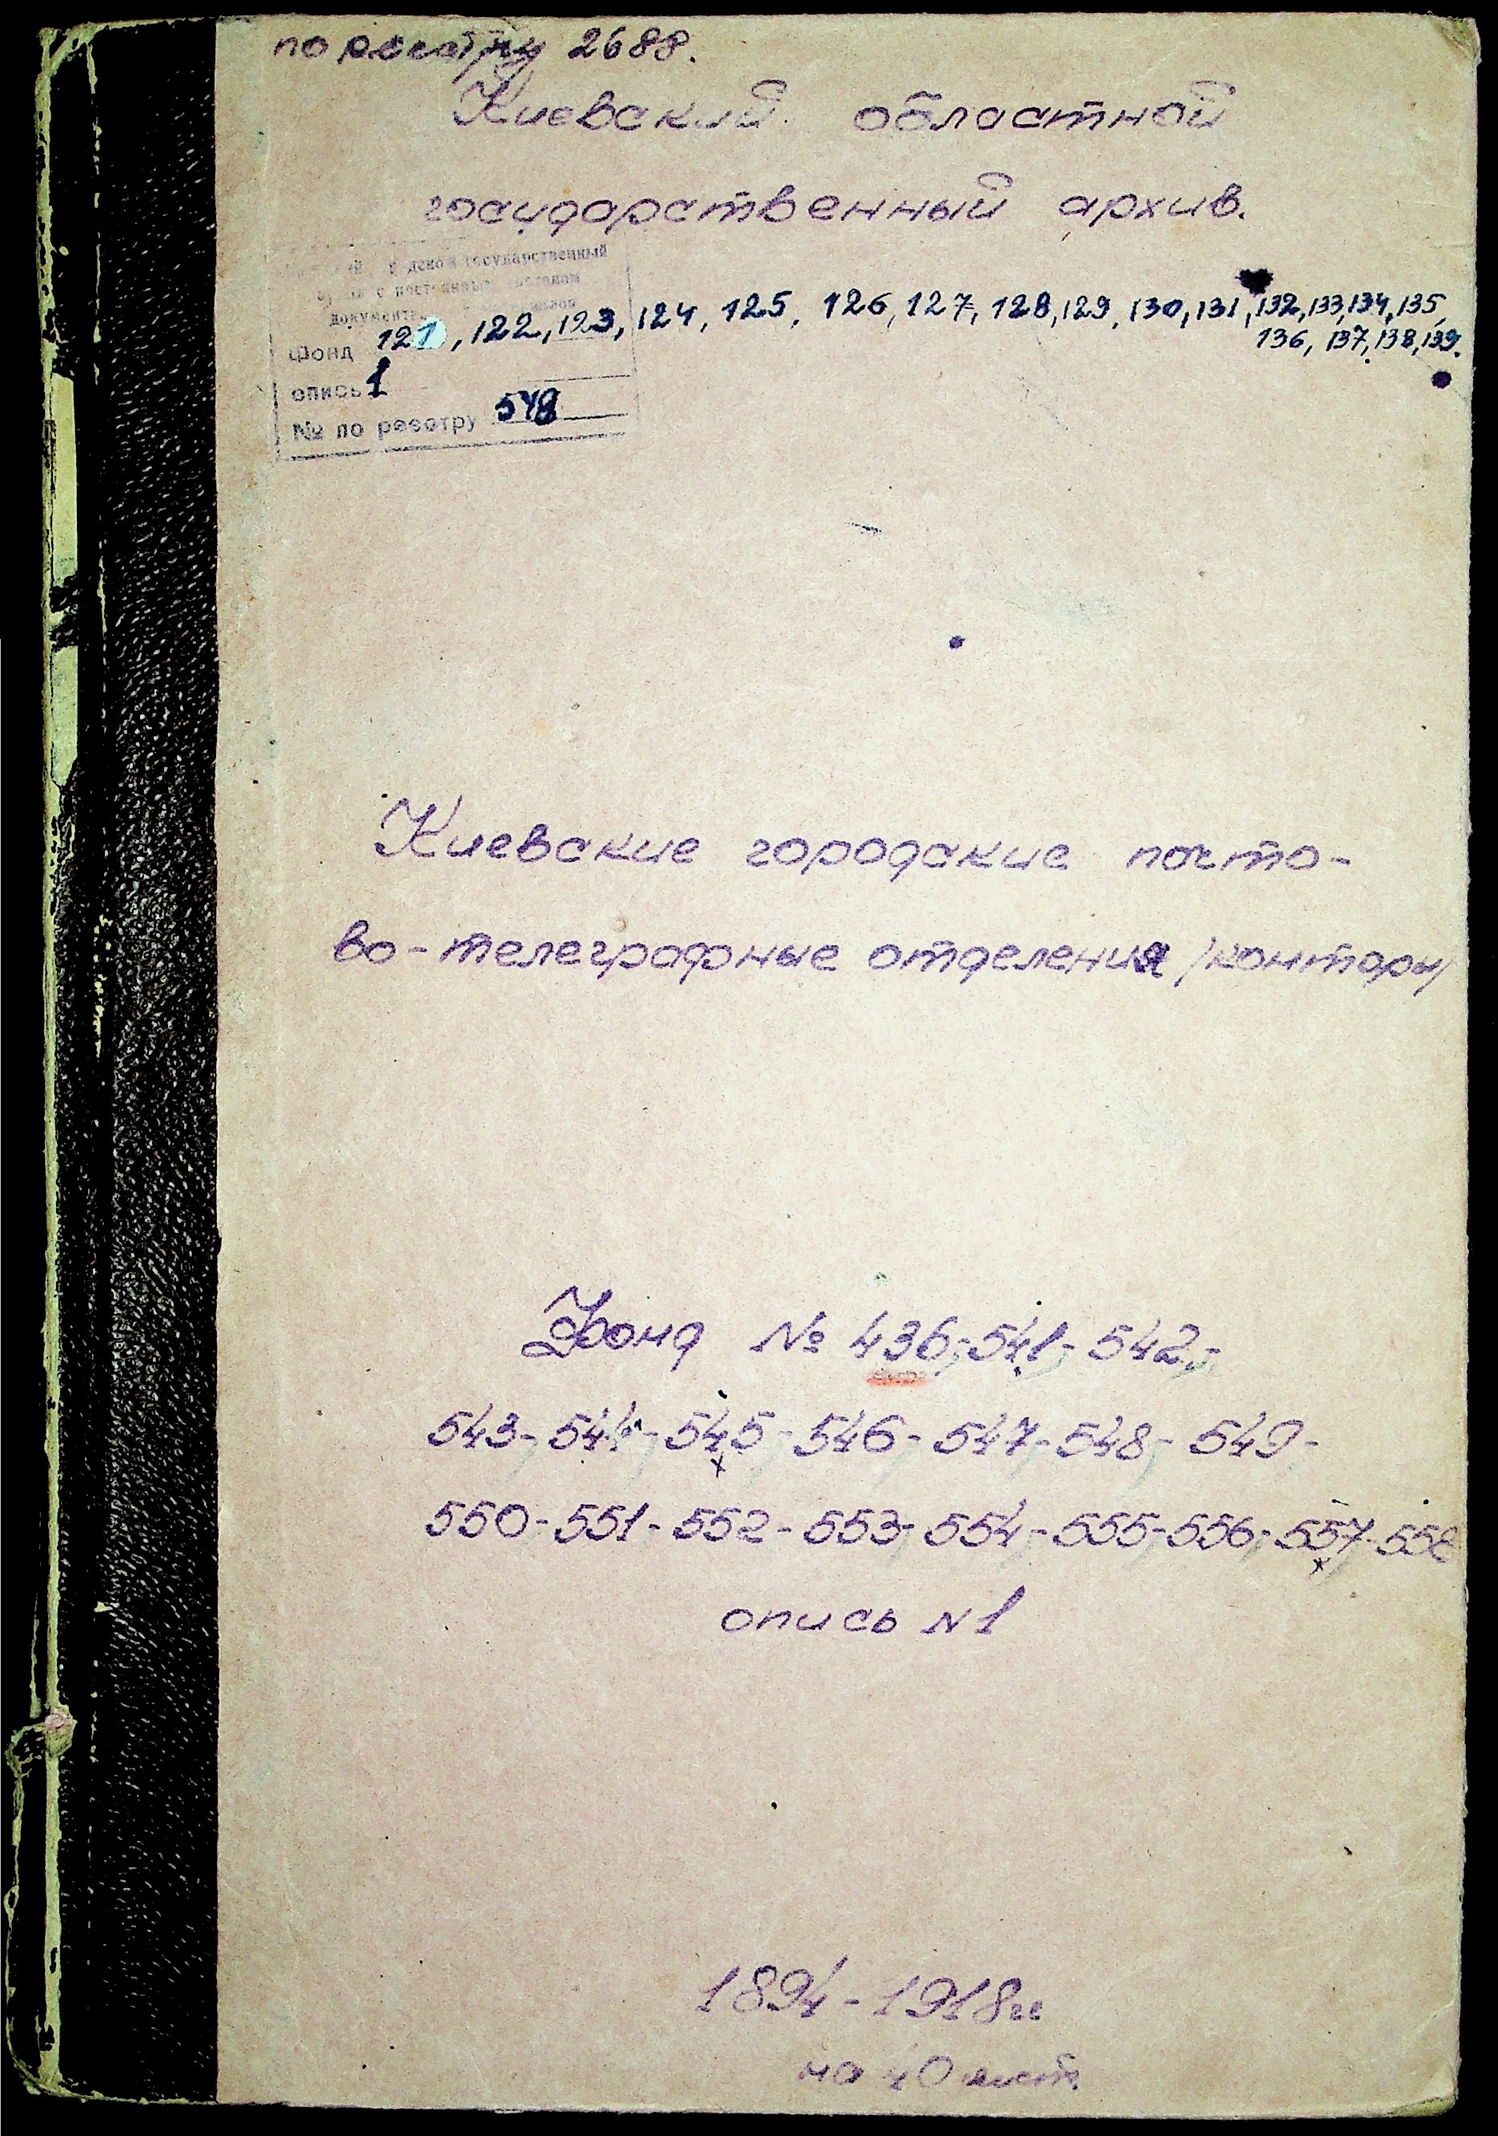 по реестру 2688.
Киевский областной
государственный архив.
государственный
фонд 121, 122, 123, 124, 125, 126, 127, 128, 129, 130, 131, 132, 133, 134, 135,
136, 137, 138, 139.
опись 1
№ по реестру 548
Киевские городские почто-
во-телеграфные отделения /конторы/
Фонд № 436,-541,-542,-
543-544-545-546-547-548-549-
550-551-552-553-554-555-556-557-558
опись N1
1894-1918гг
на 40 лист.